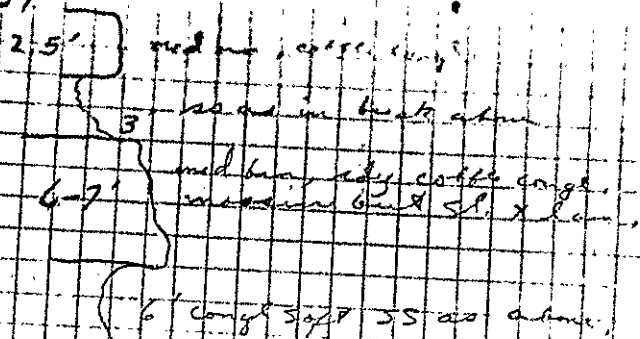 2-5' med brn, cobble congl
3 ss as in bank above
6-7' med brn, sdy cobble congl,
massive but sl. x lam,
6' congl soft SS as above,